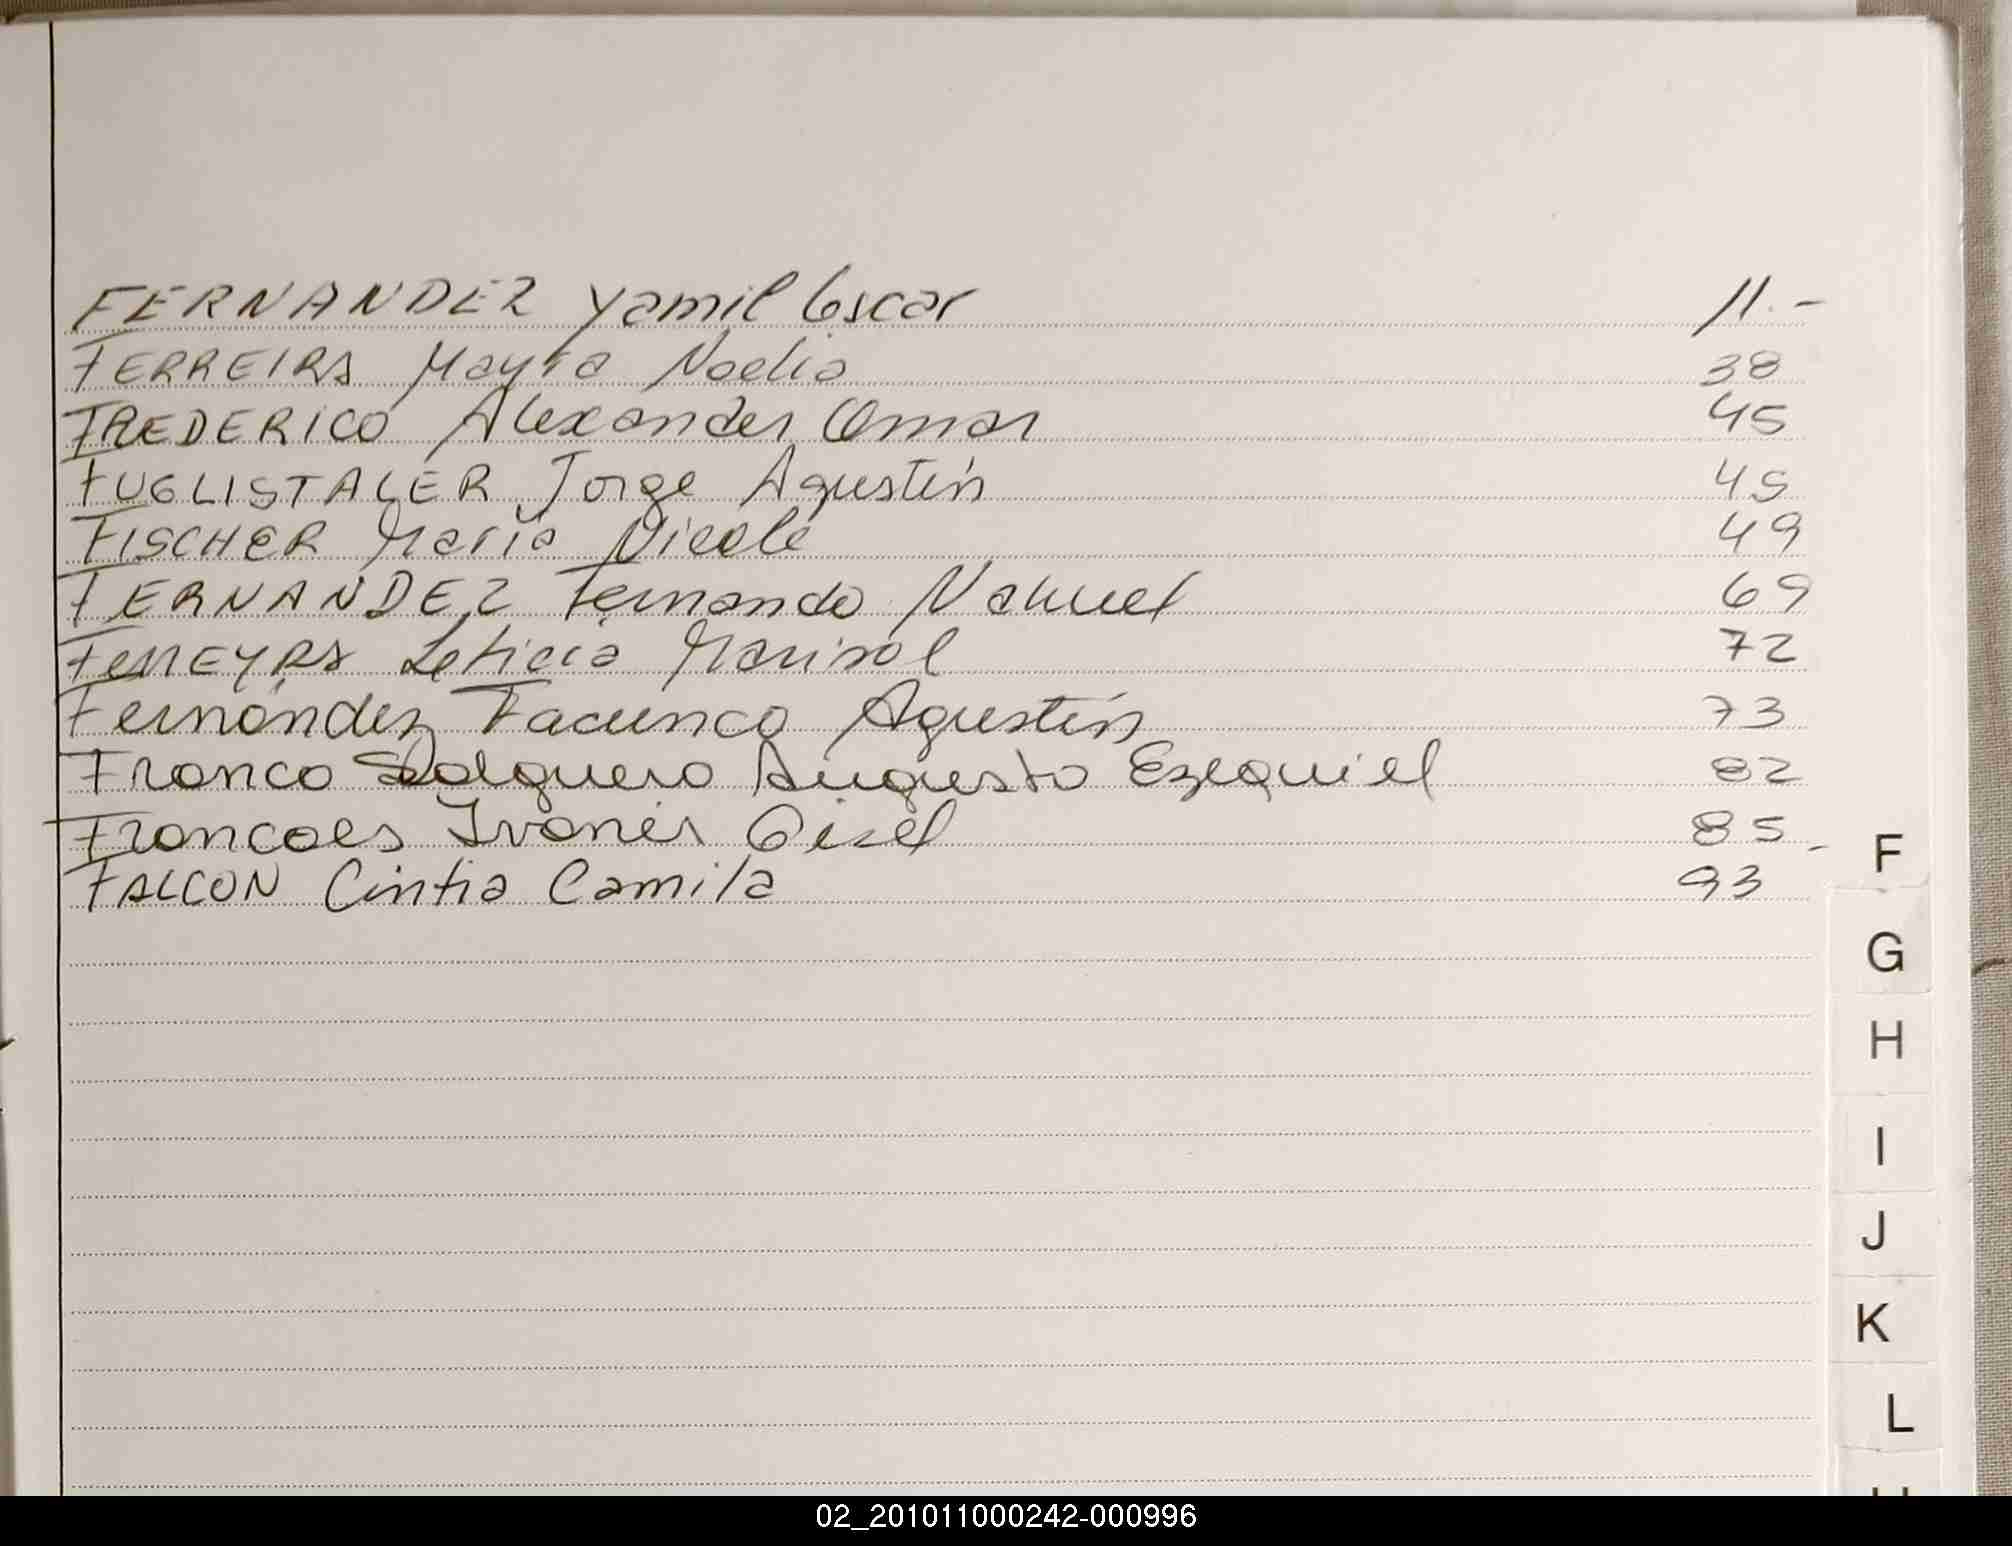 FERNANDEZ Yamil Oscar 11.-
FERREIRA Mayra Noelia 38
FREDERICO Alexander Omar 45
FUGLISTALER Jorge Agustín 45
FISCHER María Nicole 49
FERNANDEZ Fernando Nahuel 69
FERREYRA Leticia Marisol 72
Fernández Facundo Agustín 73
Franco Salguero Augusto Ezequiel 82
Gisel 85
FALCON Cintia Camila 93
F
G
H
I
J
K
L
02_201011000242-000996